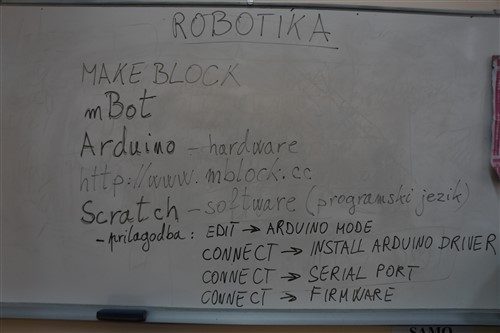 ROBOTIKA
MAKE BLOCK
mBot
Arduino - hardware
http://www.mblock.cc
Scratch - software (programski jezik)
- prilagodba : EDIT → ARDUINO MODE
CONNECT → INSTALL ARDUINO DRIVER
CONNECT → SERIAL PORT
CONNECT → FIRMWARE
SAMO